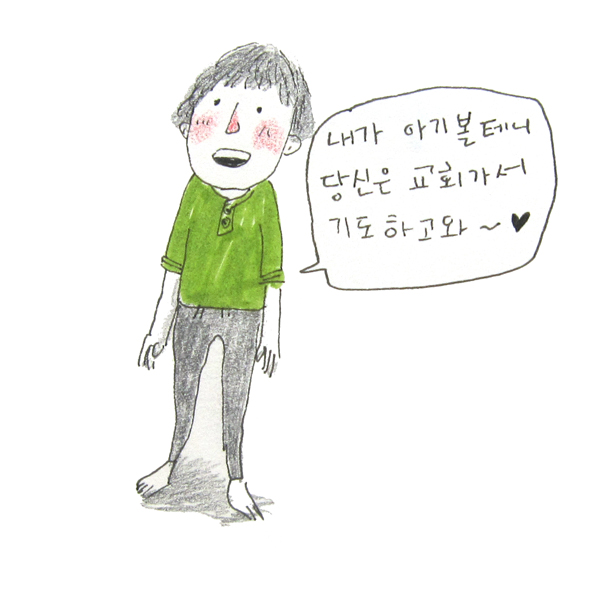 내가 아기볼테니
당신은 교회가서
기도하고와 ~ ♥